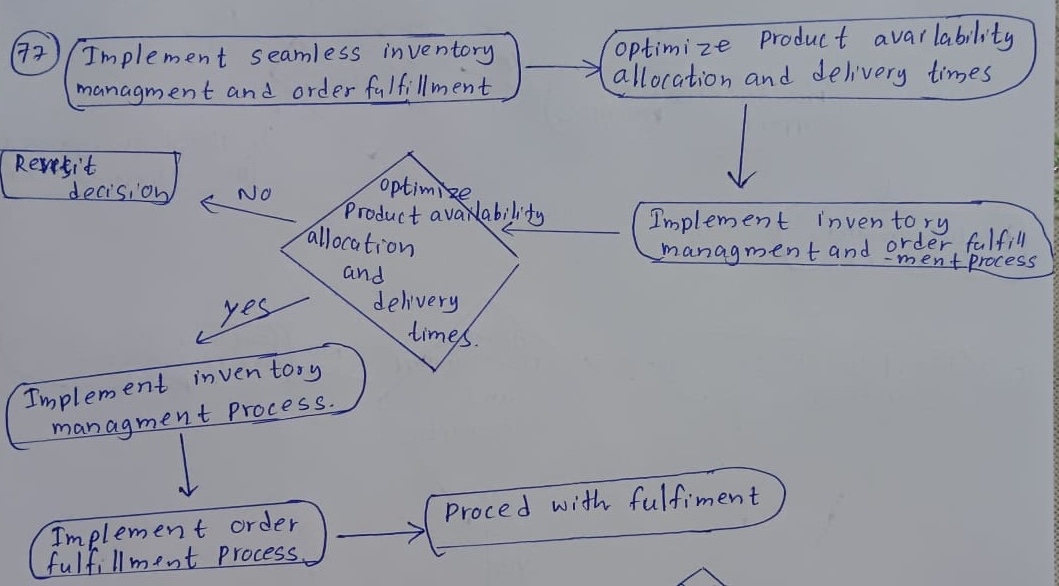 77
Implement seamless inventory
managment and order fulfillment
optimize Product availability
allocation and delivery times
Implement inventory
managment and order fulfill
-ment process
optimize
Product availability
allocation
and
delivery
times.
No
decision
yes
Implement inventory
managment Process.
Implement order
fulfillment Process.
Proced with fulfiment